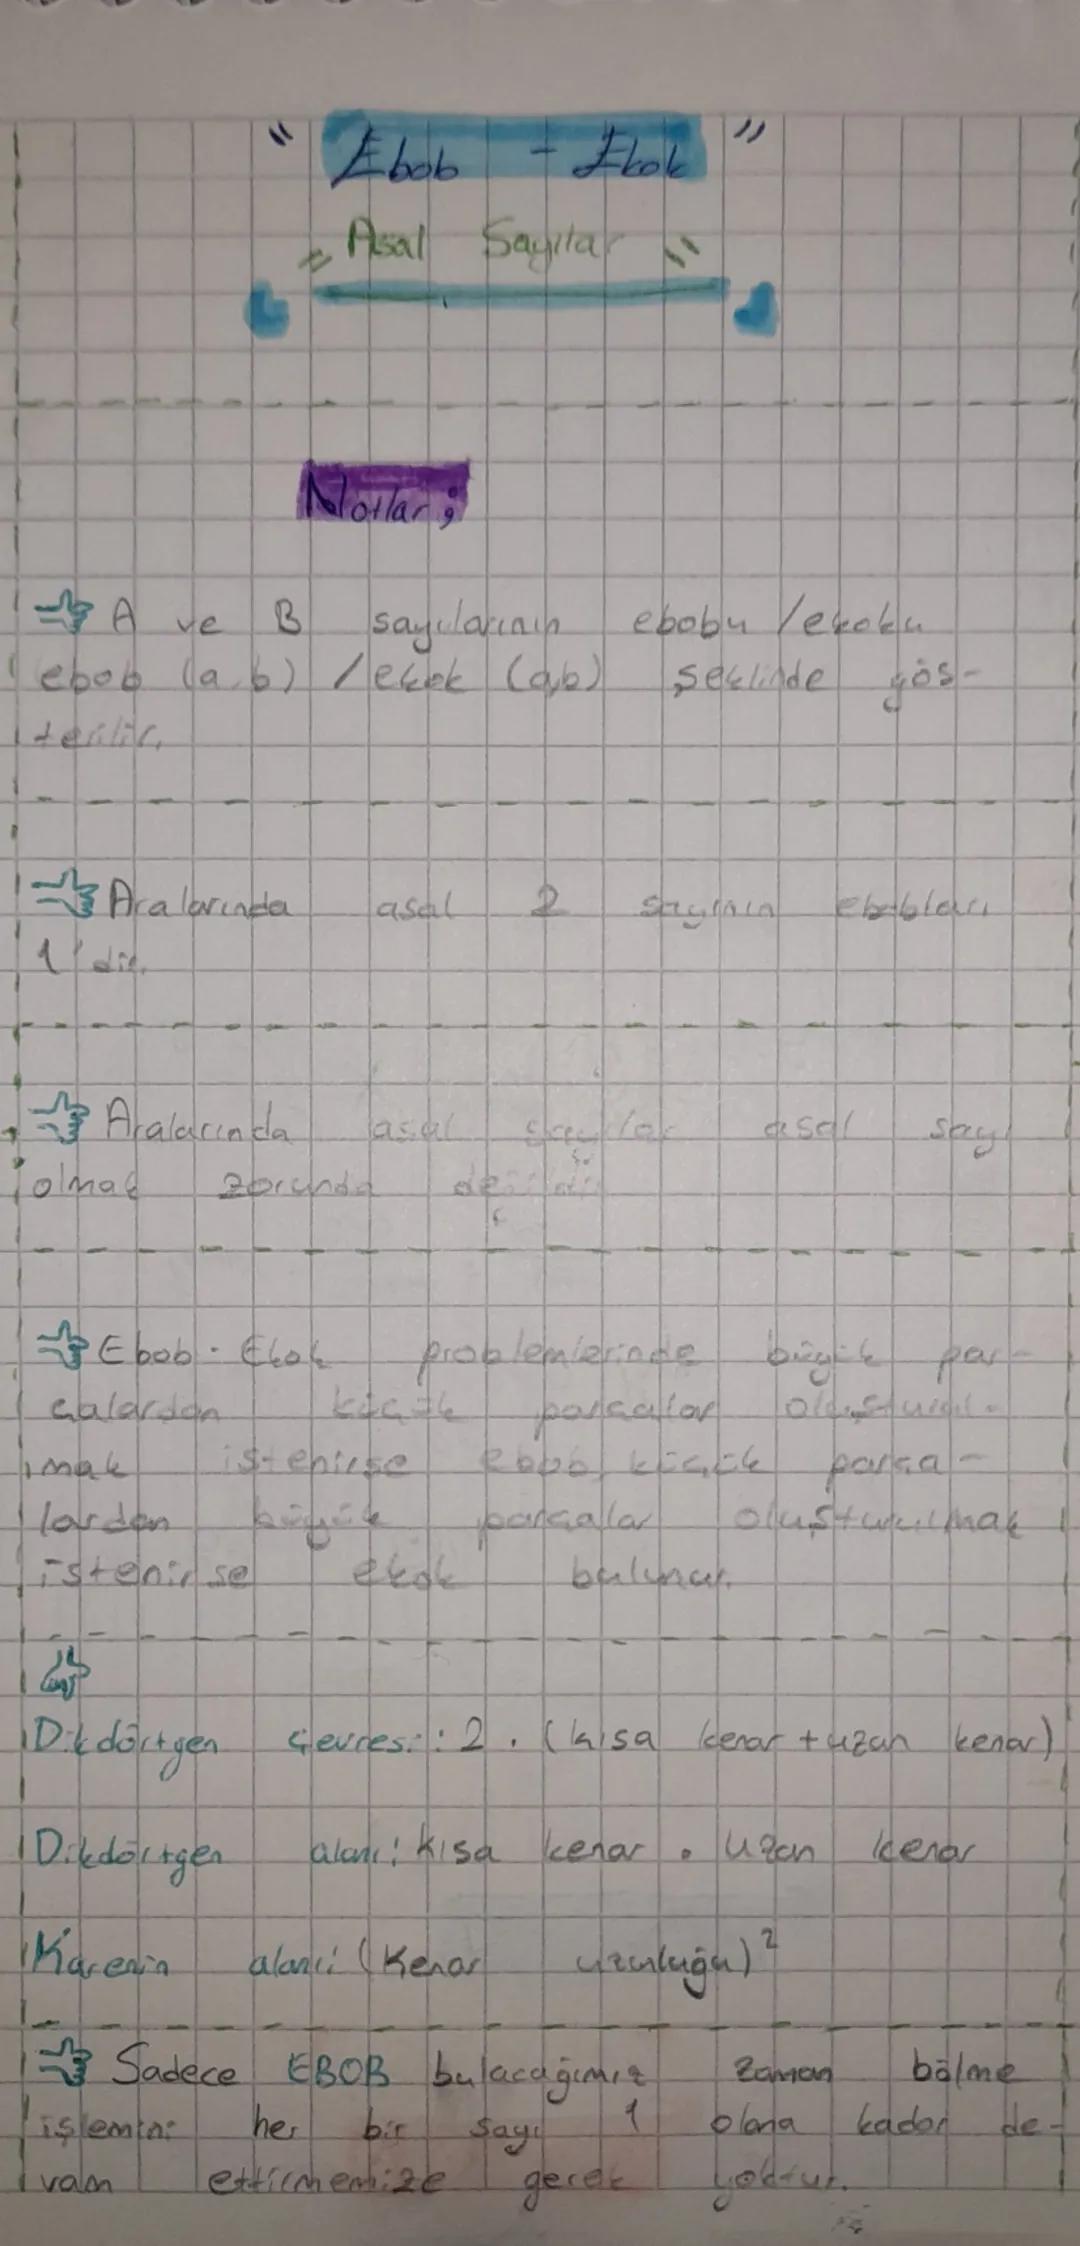 " Ebob - Ekok "
" Asal Sayılar "
Notlar ;
A ve B sayılarının ebobu / ekoku
ebob (a,b) / ekok (a,b) şeklinde gös-
terilir.
Aralarında asal 2 sayının ebobları
1'dir.
Aralarında asal sayılar asal sayı
olmak zorunda değildir
Ebob - Ekok problemlerinde büyük par-
çalardan küçük parçalar oluşturul-
mak istenirse ebob, küçük parça-
lardan büyük parçalar oluşturulmak
istenirse ekok bulunur.
Dikdörtgen çevresi : 2 . (kısa kenar + uzun kenar)
Dikdörtgen alanı : kısa kenar . uzun kenar
Karenin alanı : (Kenar uzunluğu)²
Sadece EBOB bulacağımız zaman bölme
işlemini her bir sayı 1 olana kadar de-
vam ettirmemize gerek yoktur.